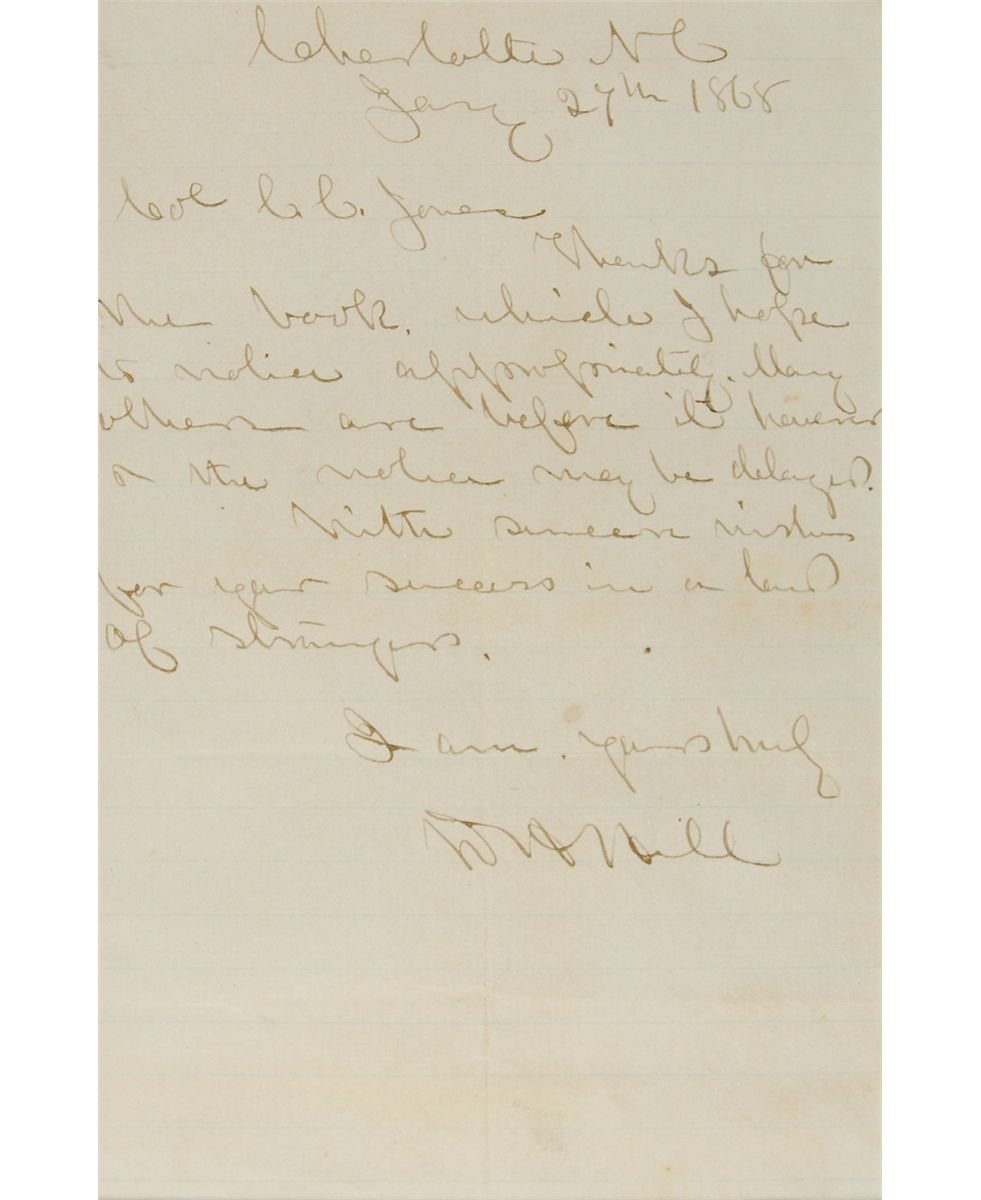 Charlotte NC
Jany 27th 1868
Col C. C. Jones
Thanks for
the book, which I hope
to notice appropriately. Many
others are before it however
& the notice may be delayed.
With sincere wishes
for your success in a land
of strangers.
I am. yours truly
D H Hill